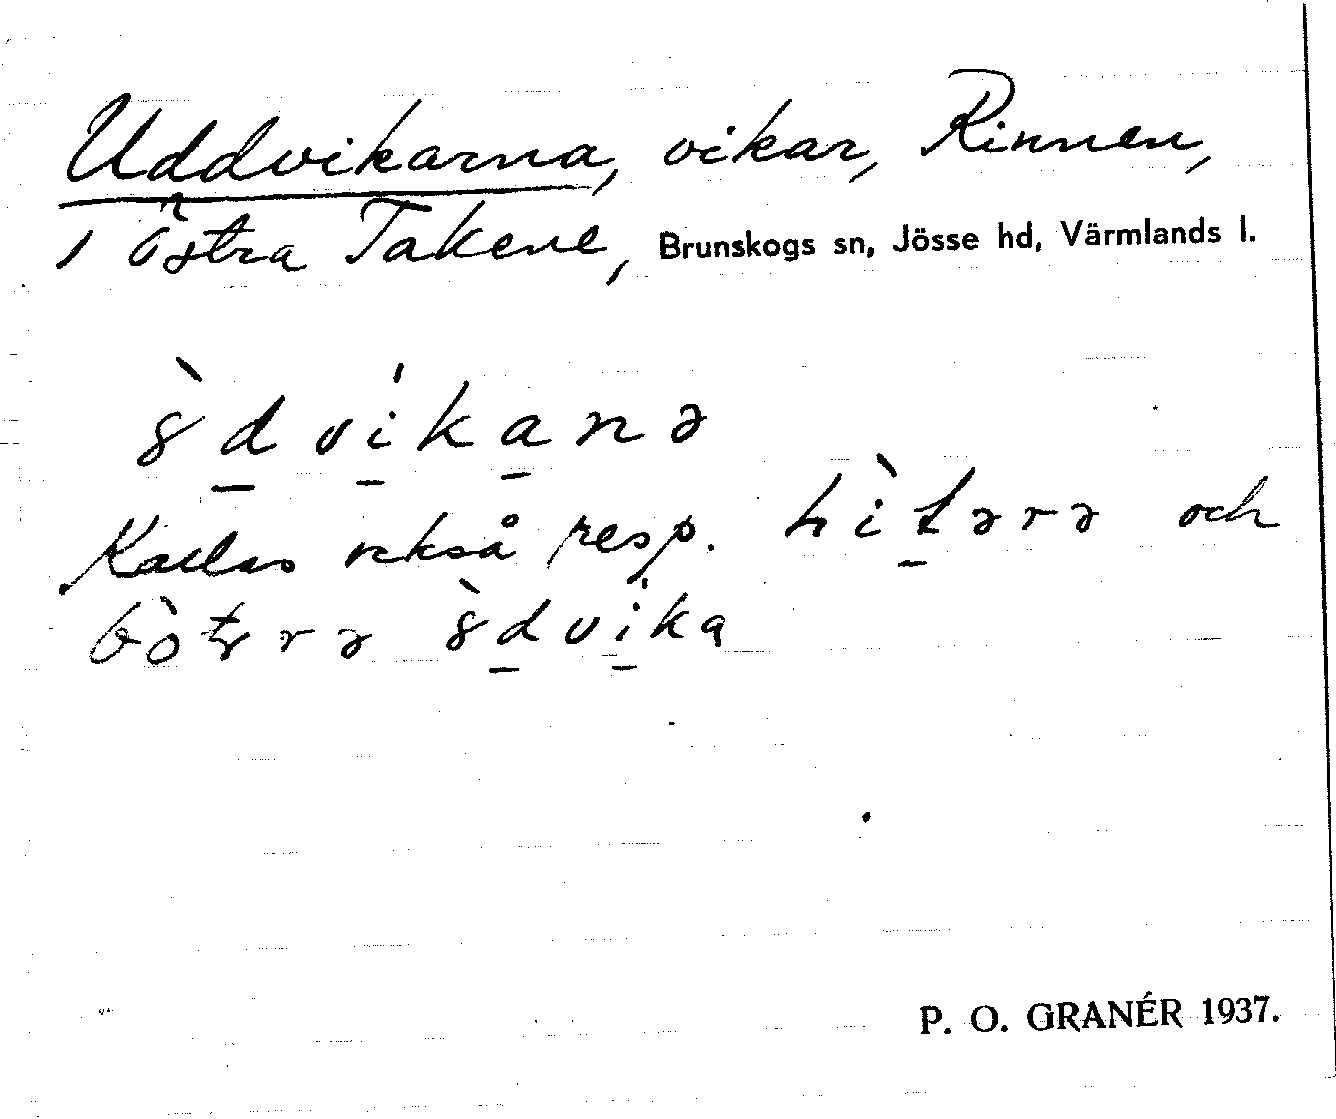 Uddvikarna, vikar, Rinnen,
i Östra Takene, Brunskogs sn, Jösse hd, Värmlands l.
ȣ̀dvikanə
Kallas också resp. hìtərə och
bòtȣrə ȣ̀dvika
P. O. GRANÉR 1937.